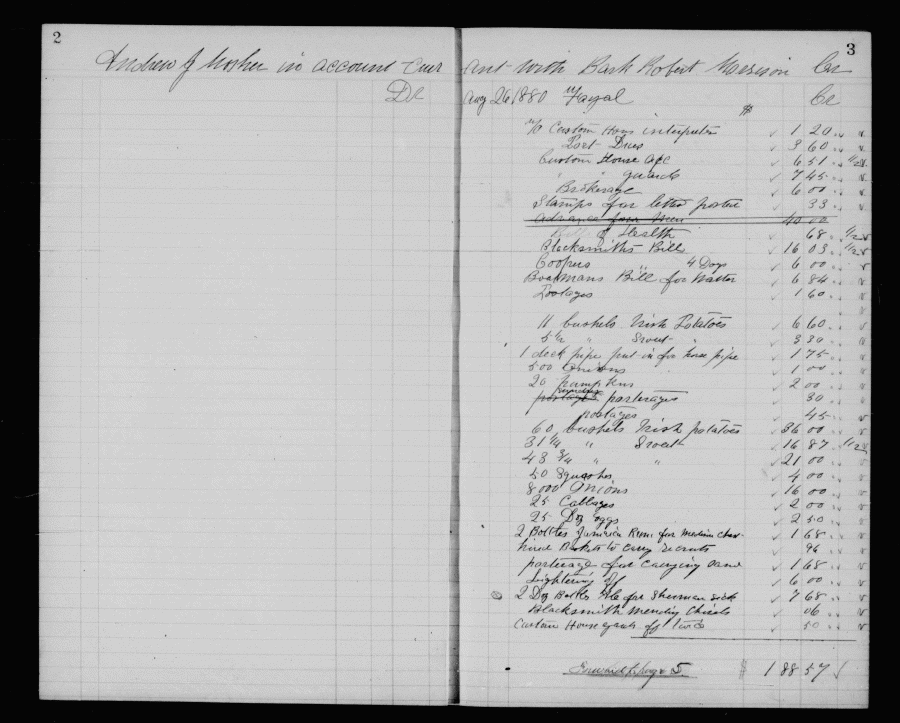 2
Andrew J Mosher in account - Curr
Dr
3
ant with Bark Robert Morrison Cr
Aug 26 1880 Fayal $ Cr
Custom Hous interpreter 1 20
Port Dues 3 60
Custom House 6 51 1/2
" " guards 7 45
Brokerage 6 00
Stamps for letter postei 33
Advance four Men 40 00
of Health 68 1/2
Blacksmiths Bill 16 03 1/2
Coopers " 4 Days 6 00
Boatmans Bill for Watter 6 84
Postages 1 60
11 bushels Irish Potatoes 6 60
5 1/2 " Sweet " 3 30
1 deck pipe put in for hose pipe 1 75
500 Onions 1 00
20 pumpkins 2 00
porterages 30
postages 45
60 bushels Irish potatoes 36 00
31 1/4 " Sweet 16 87 1/2
43 3/4 " " 21 00
50 Squashes 4 00
8000 Onions 16 00
25 Cabbages 2 00
25 Doz eggs 2 50
2 Bottles Jamaica Rum for Medicin Chest 1 68
hirae Baskets to carry recruts 96
porterage for carrying same 1 68
Lightering Do 6 00
2 Doz Bottles Ale for Sherman Sick 7 68
Blacksmith mending Chisels 06
Custom House guards off twice 50
Forward to page 5 $ 188 57